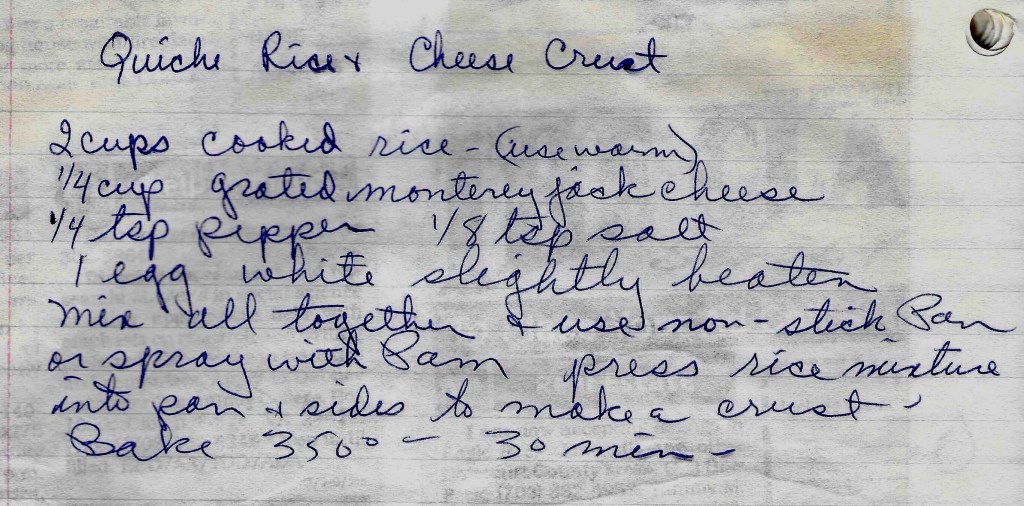 Quiche Rice & Cheese Crust
2 cups cooked rice - (use warm)
1/4 cup grated monterey jack cheese
1/4 tsp pepper 1/8 tsp salt
1 egg white slightly beaten
Mix all together & use non-stick Pan
or spray with Pam press rice mixture
into pan & sides to make a crust.
Bake 350° - 30 min -